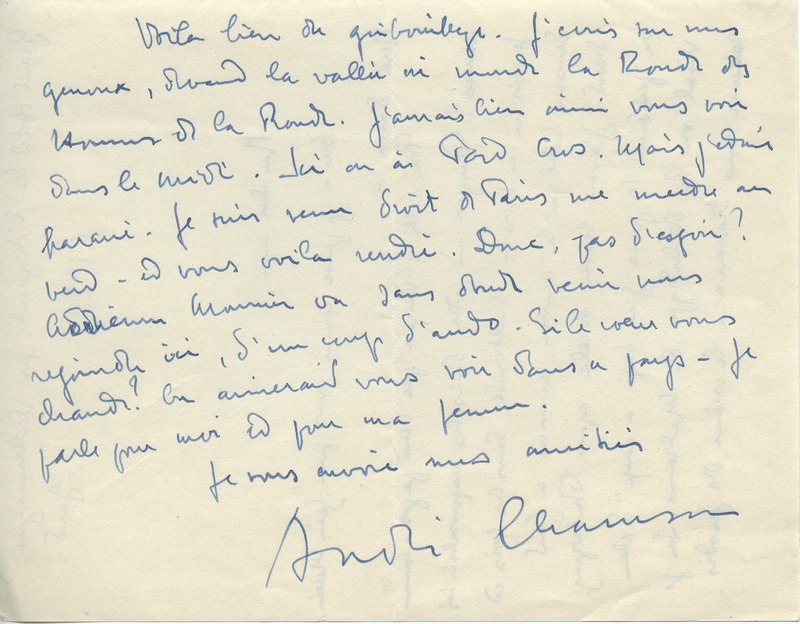 Voila bien du gribouillage. J'écris sur mes
genoux, devant la vallée où monte la Ronde des
Hommes de la Route. J'aurais bien aimé vous voir
dans le midi. Ici ou à Pard Cros. Mais j'étais
harassé. Je suis venu droit de Paris me mettre au
vert - et vous voila rentré. Donc, pas d'espoir?
Adrienne Monnier va sans doute venir nous
rejoindre ici, d'un coup d'auto. Si le cœur vous
chante? On aimerait vous voir dans ce pays - Je
parle pour moi et pour ma femme.
Je vous envoie mes amitiés
André Chamson